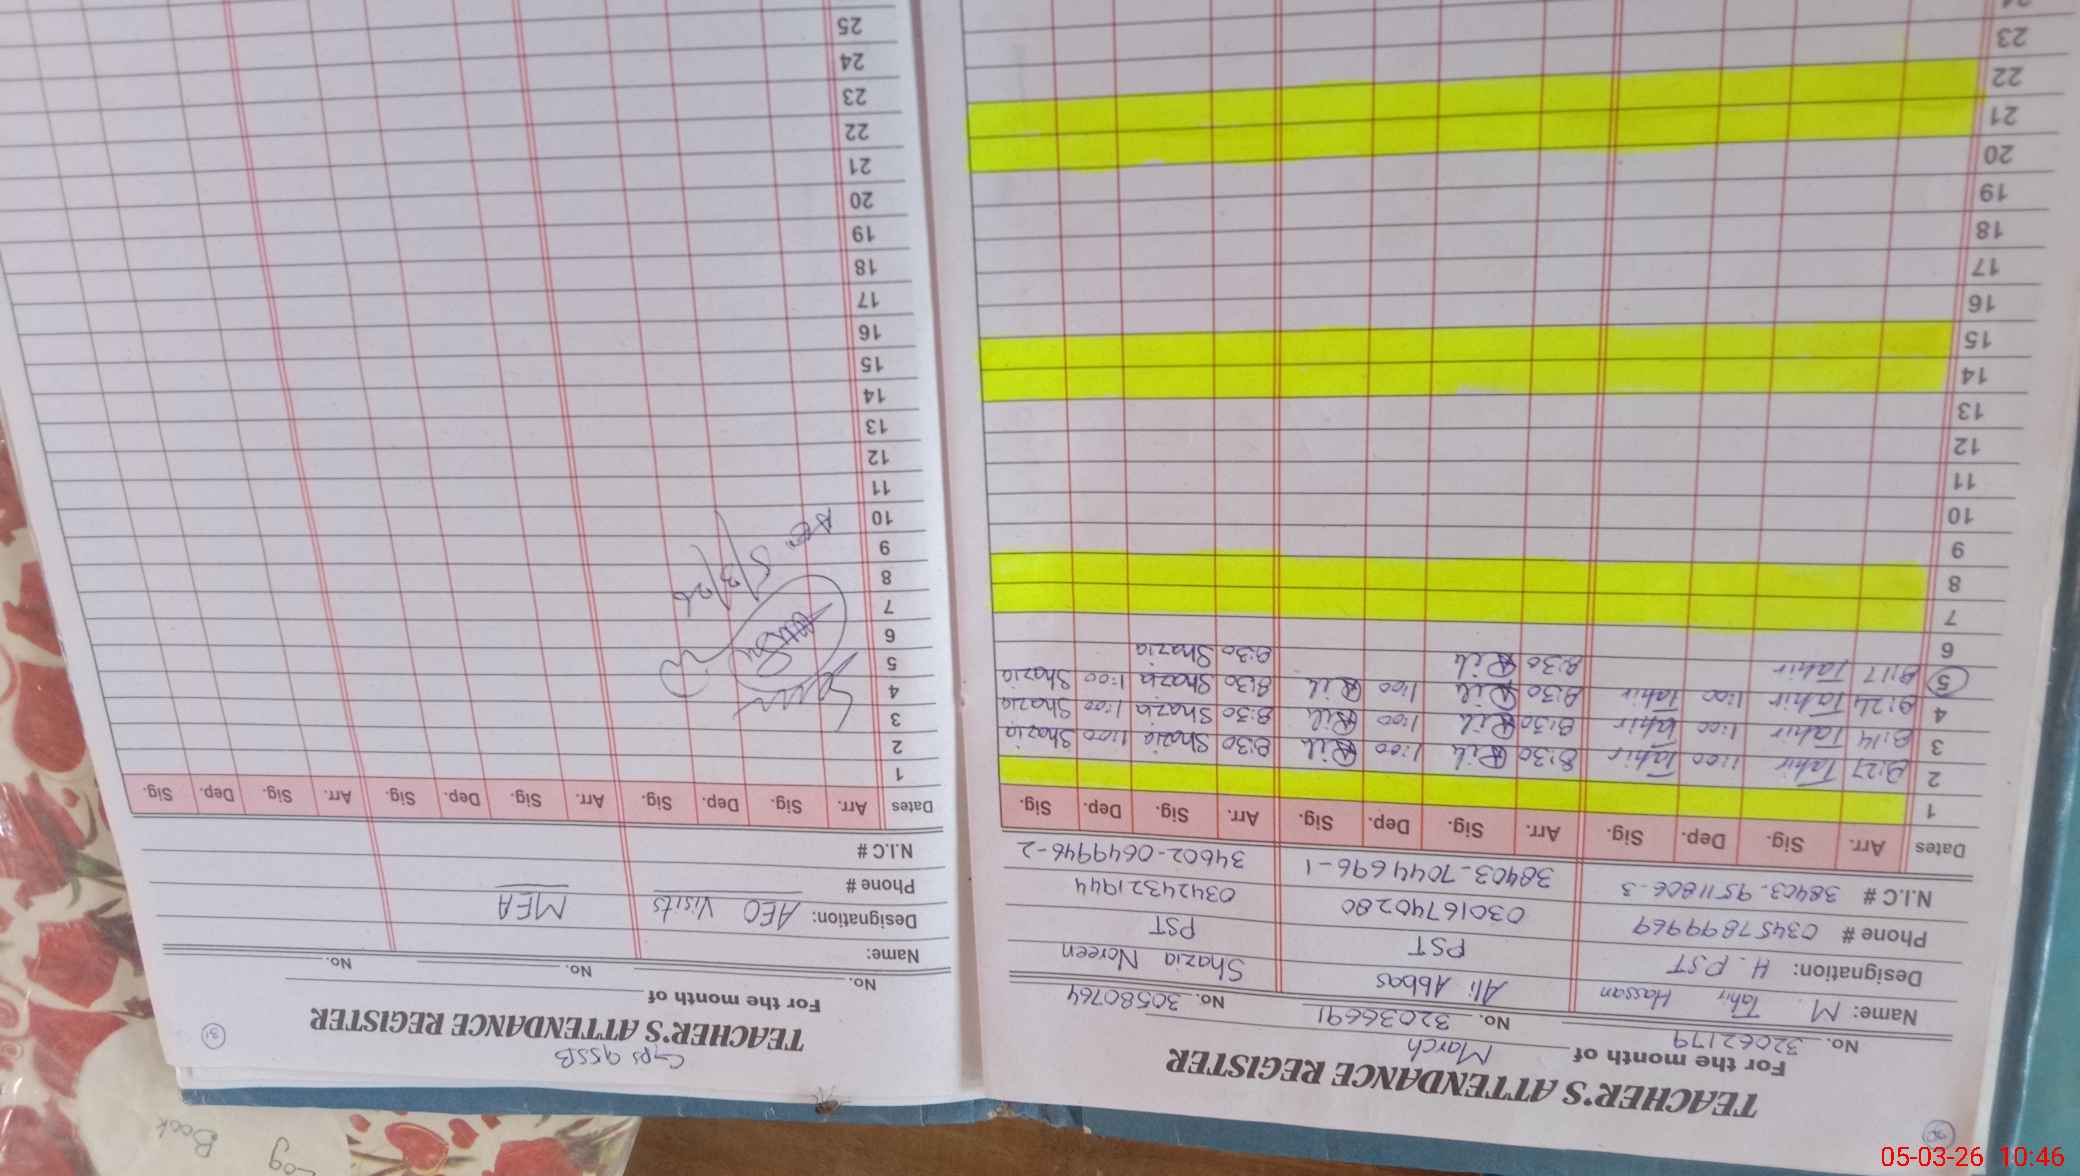 TEACHER'S ATTENDANCE REGISTER
For the month of March
No. 32062179 No. 32036691 No. 30580764
Name: M. Tahir Hassan Ali Abbas Shazia Noreen
Designation: H. PST PST PST
Phone # 03457899969 03016740280 03424321944
N.I.C # 38403-9511806-3 38403-7044696-1 34602-0649946-2
Dates Arr. Sig. Dep. Sig. Arr. Sig. Dep. Sig. Arr. Sig. Dep. Sig.
1
2 8:27 Tahir 1:00 Tahir 8:30 1:00 8:30 Shazia 1:00 Shazia
3 8:14 Tahir 1:00 Tahir 8:30 1:00 8:30 Shazia 1:00 Shazia
4 8:24 Tahir 1:00 Tahir 8:30 1:00 8:30 Shazia 1:00 Shazia
5 8:17 Tahir 8:30 8:30 Shazia
6
7
8
9
10
11
12
13
14
15
16
17
18
19
20
21
22
23
24
31
TEACHER'S ATTENDANCE REGISTER
For the month of
No. No. No.
Name:
Designation: AEO Visits MEA
Phone #
N.I.C #
Dates Arr. Sig. Dep. Sig. Arr. Sig. Dep. Sig. Arr. Sig. Dep. Sig.
1
2
3
4
5
6
7
8
5/3/26
9
10
11
12
13
14
15
16
17
18
19
20
21
22
23
24
25
Log
Book
05-03-26 10:46